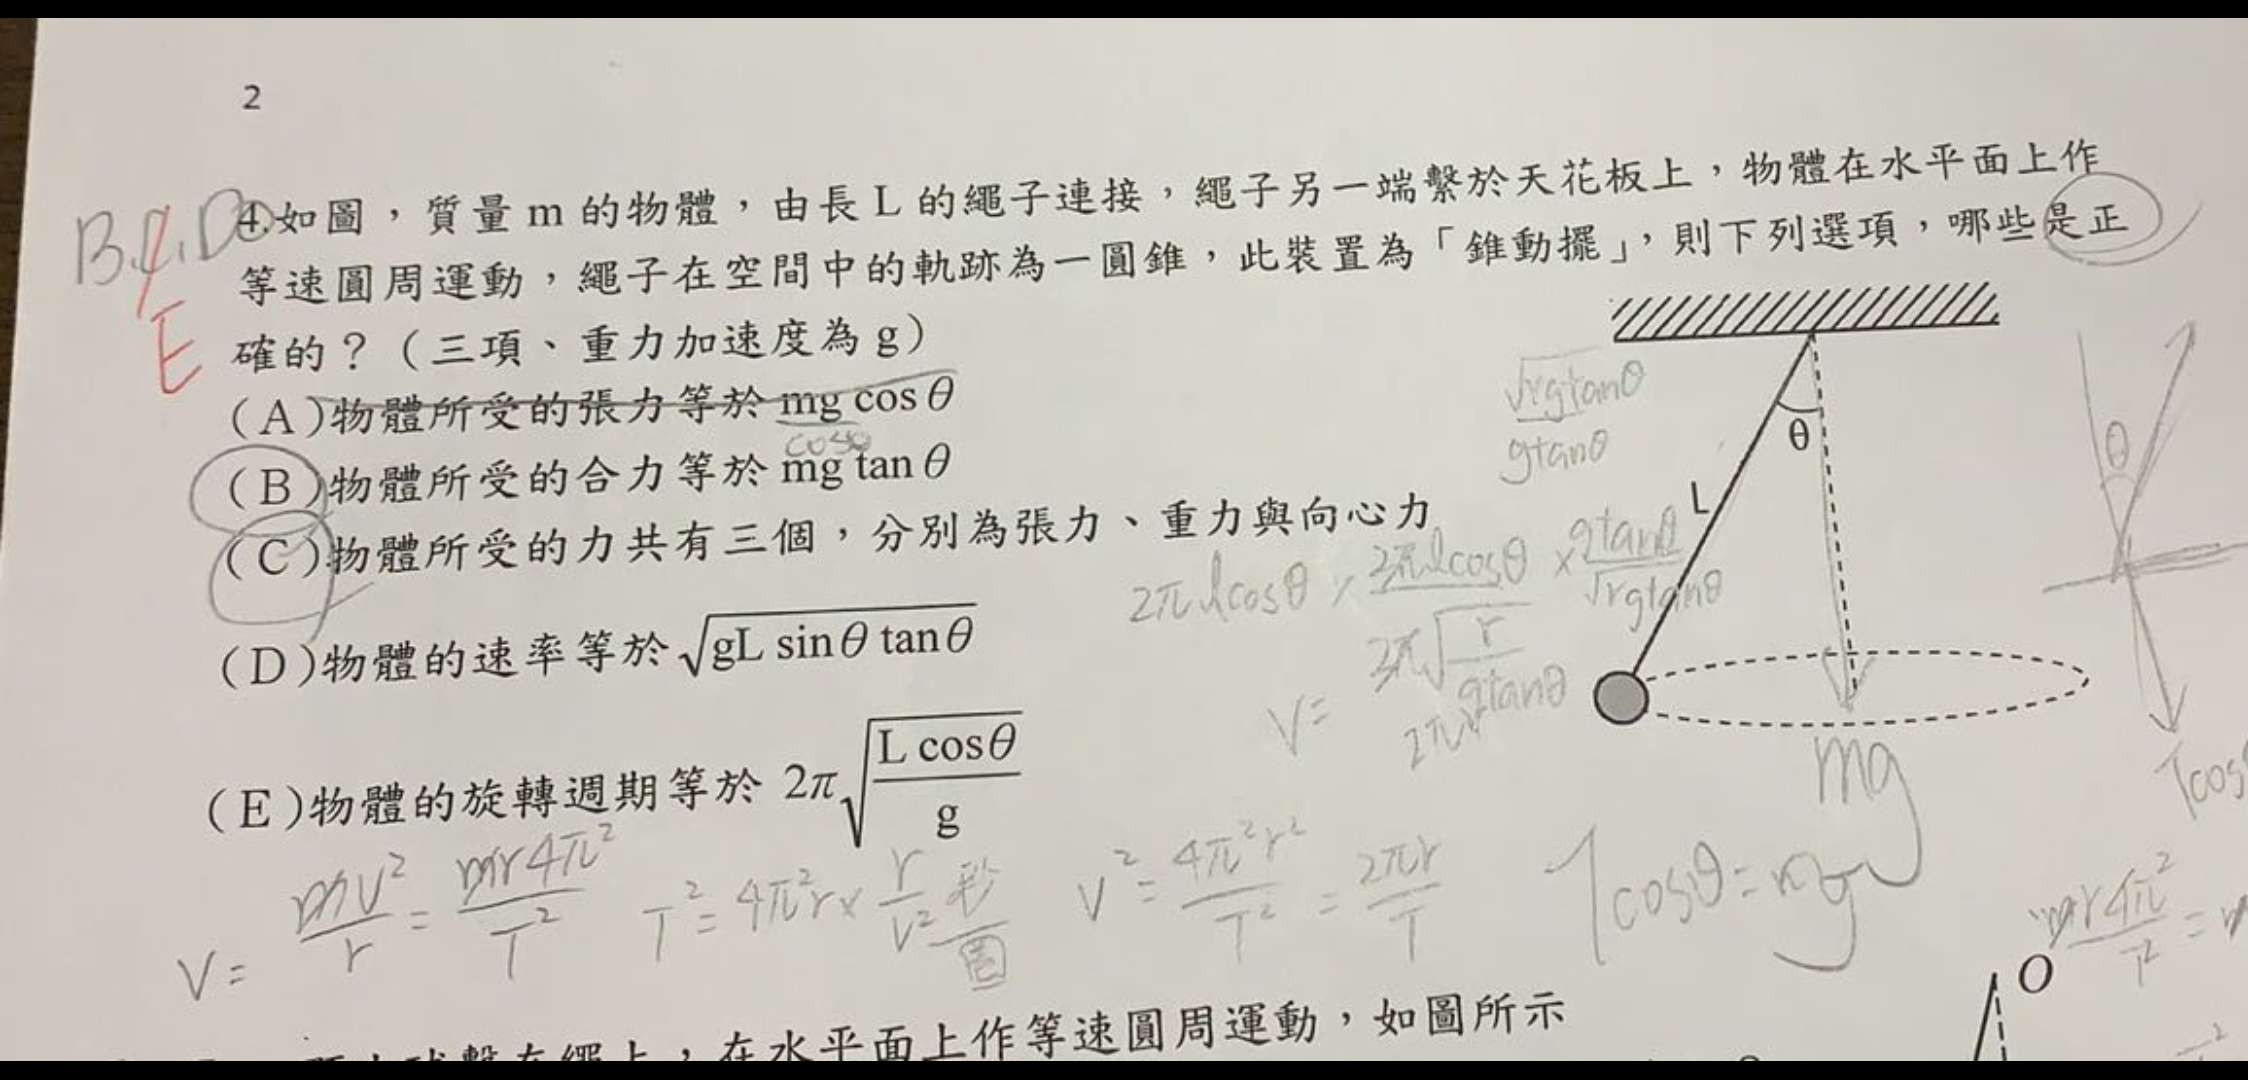 2
B.C.D
E
4.如圖，質量 m 的物體，由長 L 的繩子連接，繩子另一端繫於天花板上，物體在水平面上作
等速圓周運動，繩子在空間中的軌跡為一圓錐，此裝置為「錐動擺」，則下列選項，哪些是正
確的？（三項、重力加速度為 g）
(A)物體所受的張力等於 mg cosθ
cosθ
(B)物體所受的合力等於 mg tanθ
(C)物體所受的力共有三個，分別為張力、重力與向心力
(D)物體的速率等於 √(gL sinθ tanθ)
(E)物體的旋轉週期等於 2π√(L cosθ / g)
√rgtanθ
gtanθ
θ
L
θ
2πlcosθ × 2πlcosθ × gtanθ / √rgtanθ
2π√(r / gtanθ)
V=
mg
Tcosθ=mg
V=
mv²/r = mr4π²/T²
T²=4π²r× r/v² 秒/圈
V²= 4π²r²/T² = 2πr/T
mr4π²/T² =
O
在水平面上作等速圓周運動，如圖所示